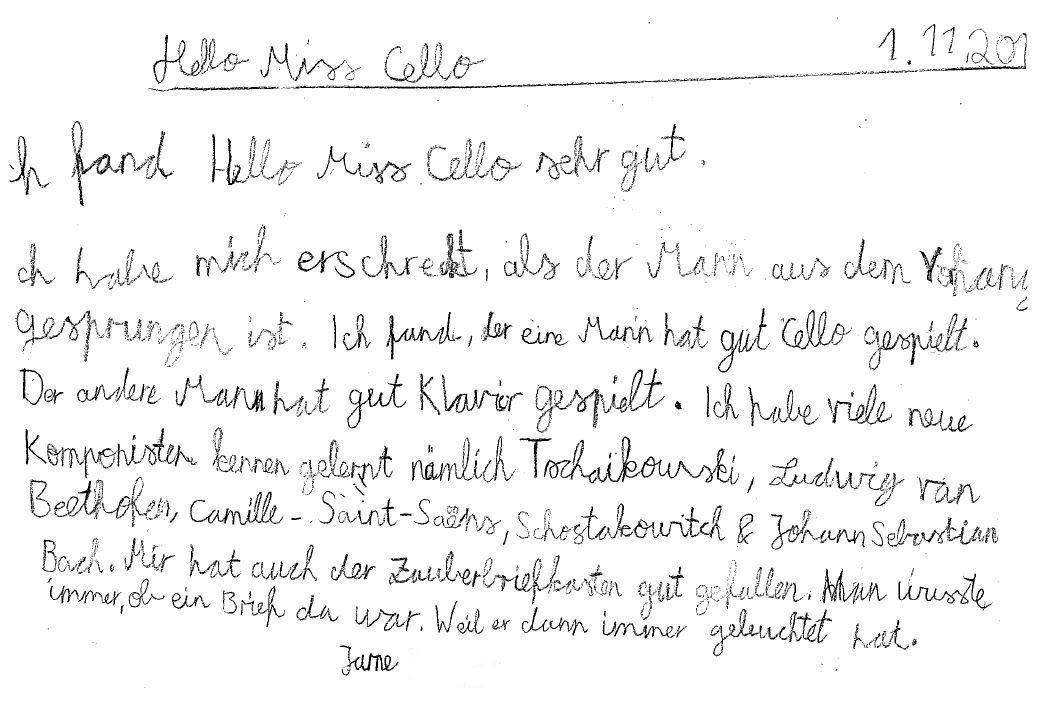 Hello Miss Cello 1.11.201
ch fand Hello Miss Cello sehr gut.
ch habe mich erschreckt, als der Mann aus dem Vohang
gesprungen ist. Ich fand, der eine Mann hat gut Cello gespielt.
Der andere Mann hat gut Klavier gespielt. Ich habe viele neue
Komponisten kennen gelernt nämlich Tschaikowski, Ludwig van
Beethofen, Camille-Saint-Saëns, Schostakowitch & Johann Sebastian
Bach. Mir hat auch der Zauberbriefkasten gut gefallen. Man wusste
immer, ob ein Brief da war. Weil er dann immer geleuchtet hat.